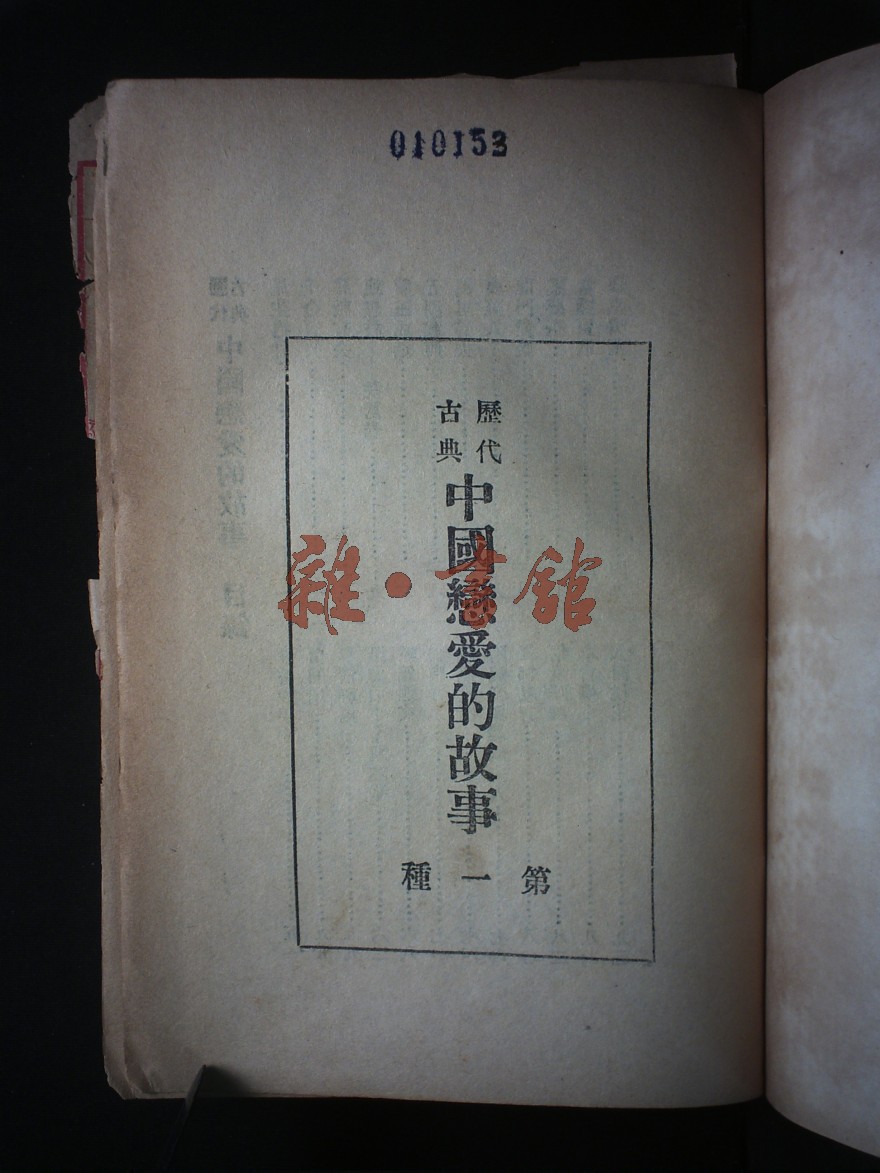 010153
歷代
古典
中國戀愛的故事
第一種
雜·書館